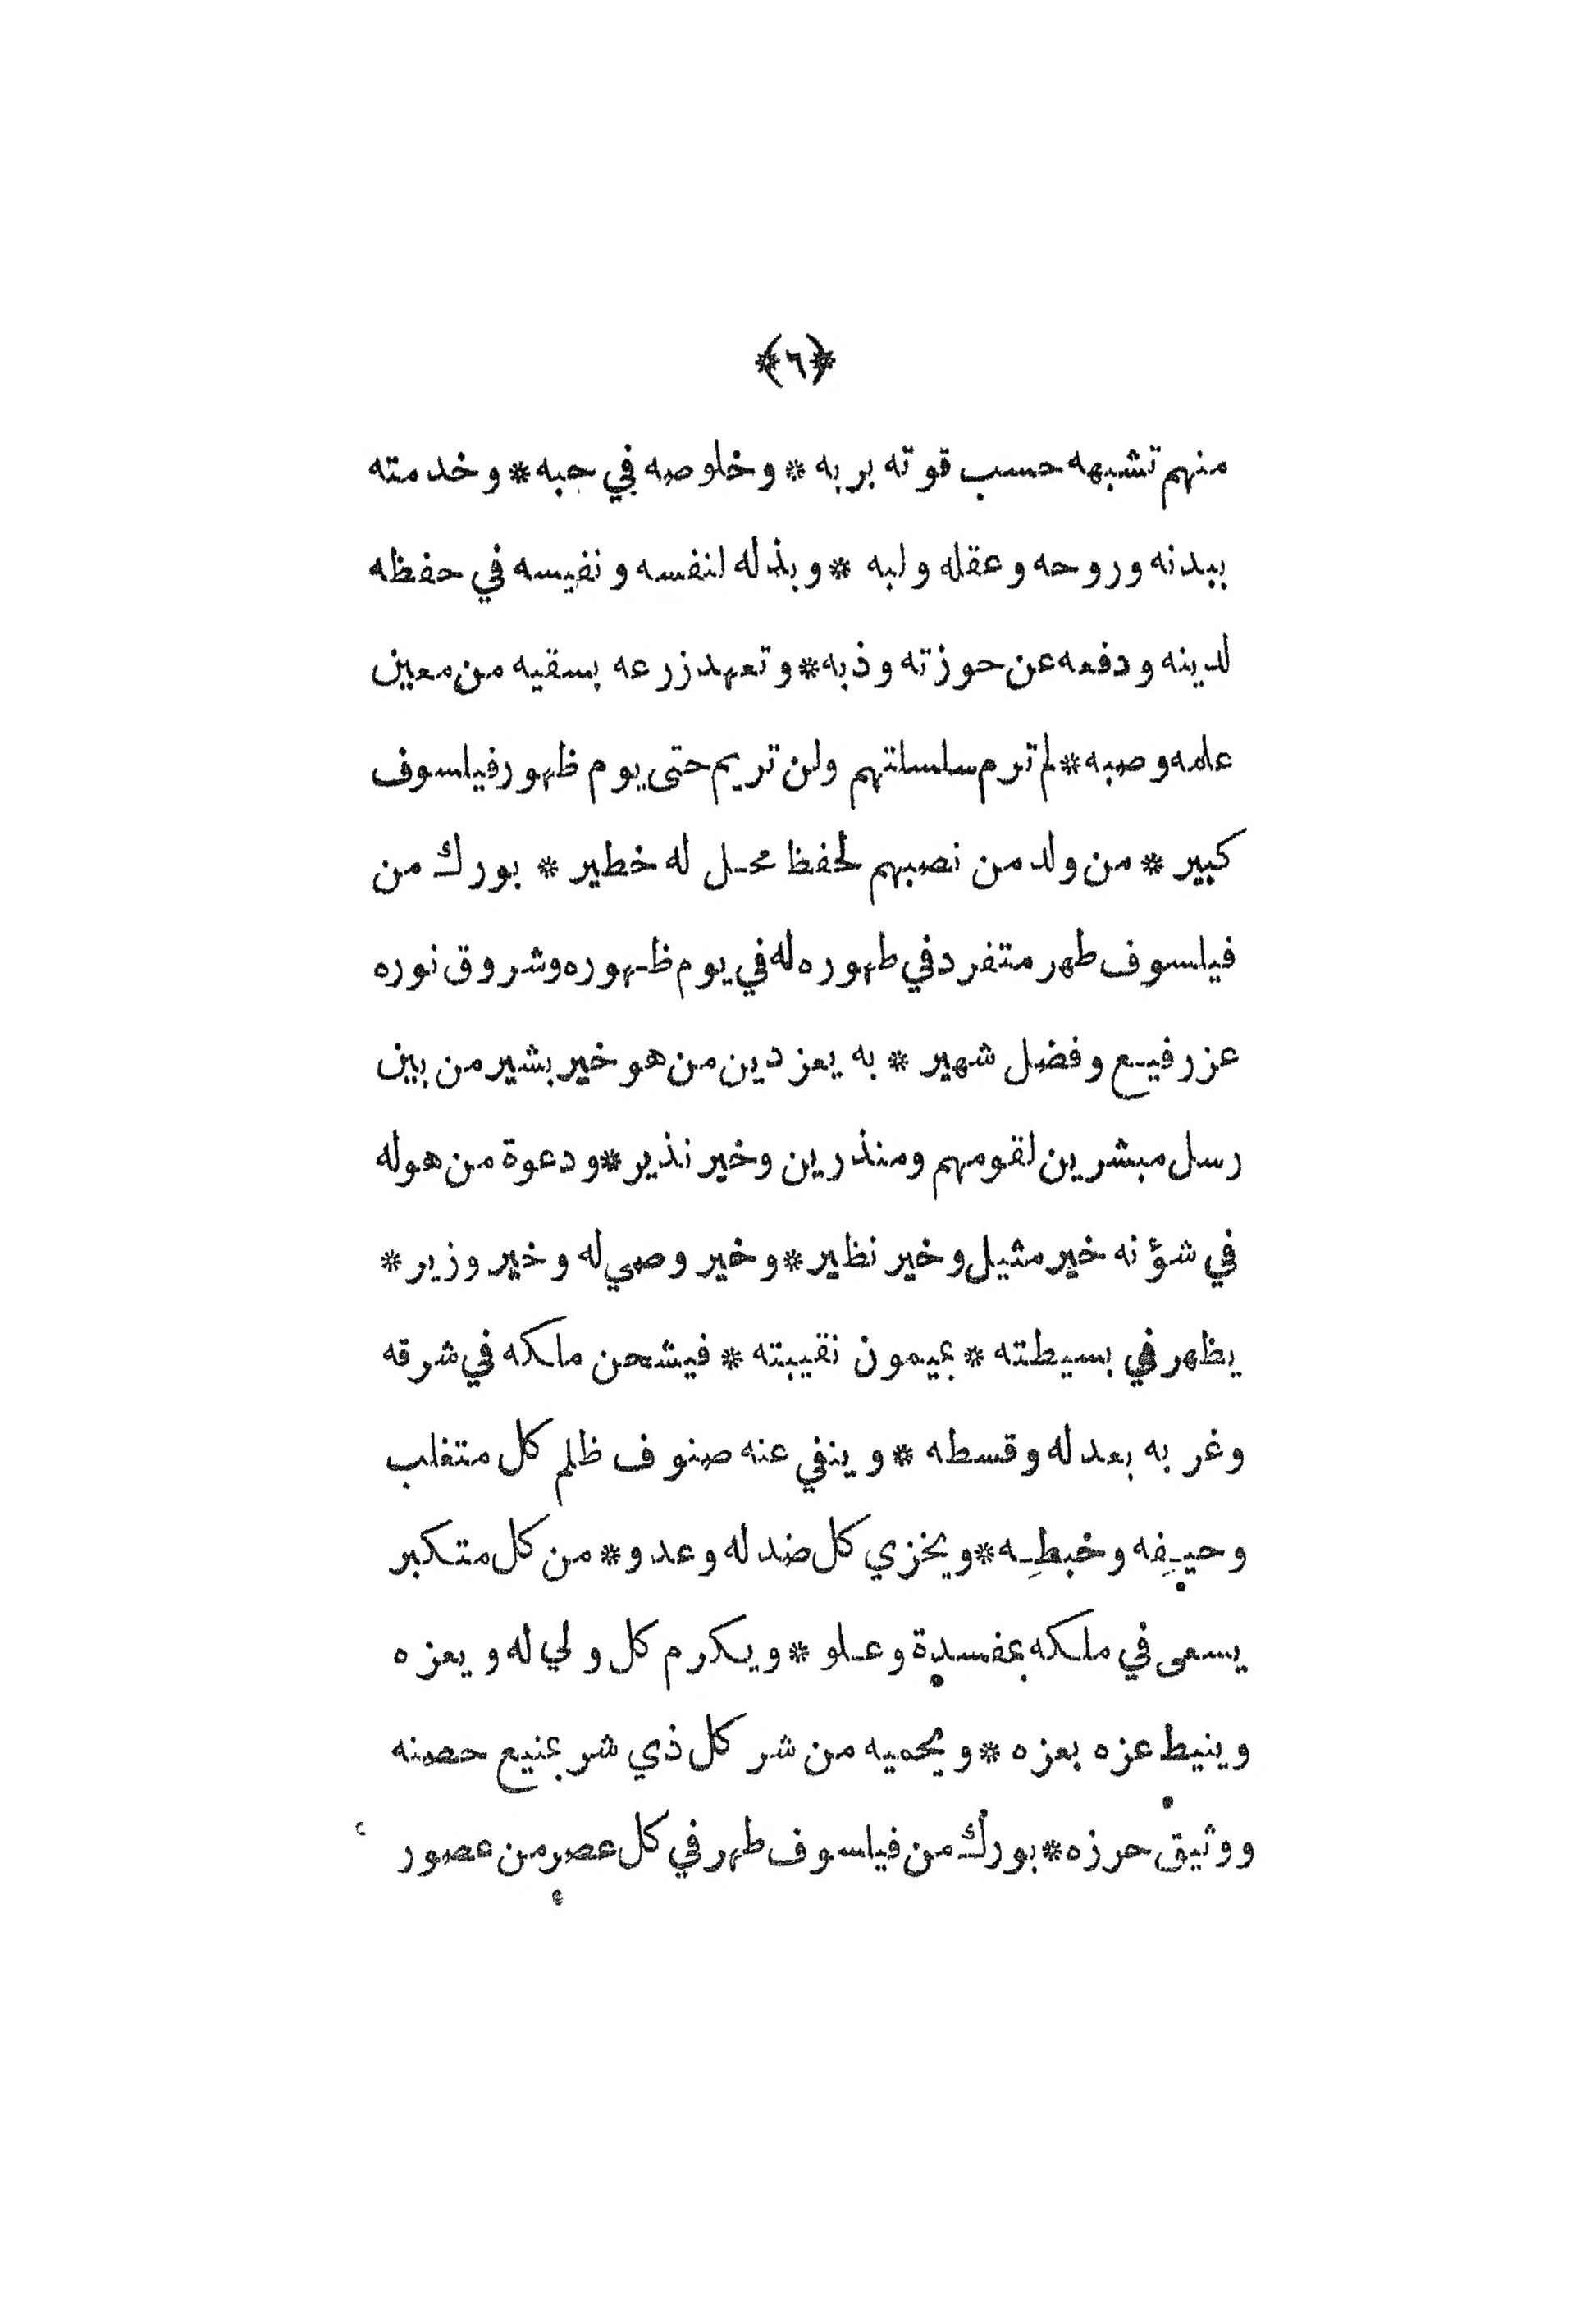 ﴿٦﴾
منهم تشبهه حسب قوته بربه * وخلوصه في حبه * وخدمته
ببدنه وروحه وعقله ولبه * وبذله لنفسه ونفيسه في حفظه
لدينه ودفعه عن حوزته وذبه * وتعهد زرعه بسقيه من معين
علمه وصبه * لم ترم سلسلتهم ولن تريم حتى يوم ظهور فيلسوف
كبير * من ولد من نصبهم لحفظ محل له خطير * بورك من
فيلسوف طهر متفرد في طهوره له في يوم ظهوره وشروق نوره
عز رفيع وفضل شهير * به يعز دين من هو خير بشير من بين
رسل مبشرين لقومهم ومنذرين وخير نذير * ودعوة من هو له
في شؤنه خير مثيل وخير نظير * وخير وصي له وخير وزير *
يظهر في بسيطته * بميمون نقيبته * فيشحن ملكه في شرقه
وغربه بعدله وقسطه * وينفي عنه صنوف ظلم كل متغلب
وحيفِه وخبطِه * ويخزي كل ضد له وعدو * من كل متكبر
يسعى في ملكه بمفسدة وعلو * ويكرم كل ولي له ويعزه
وينيط عزه بعزه * ويحميه من شر كل ذي شر بمنيع حصنه
ووثيق حرزه * بورك من فيلسوف طهر في كل عصر من عصور